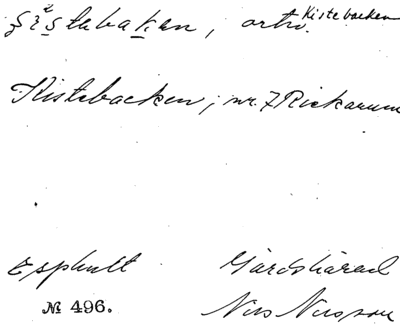 ʂɪ̌s̲tebak̲an, orto. Kistebacken
Kistebacken; nr. 7 Rickarum
Esphult Gärdshärad
№ 496. Nils Nilsson